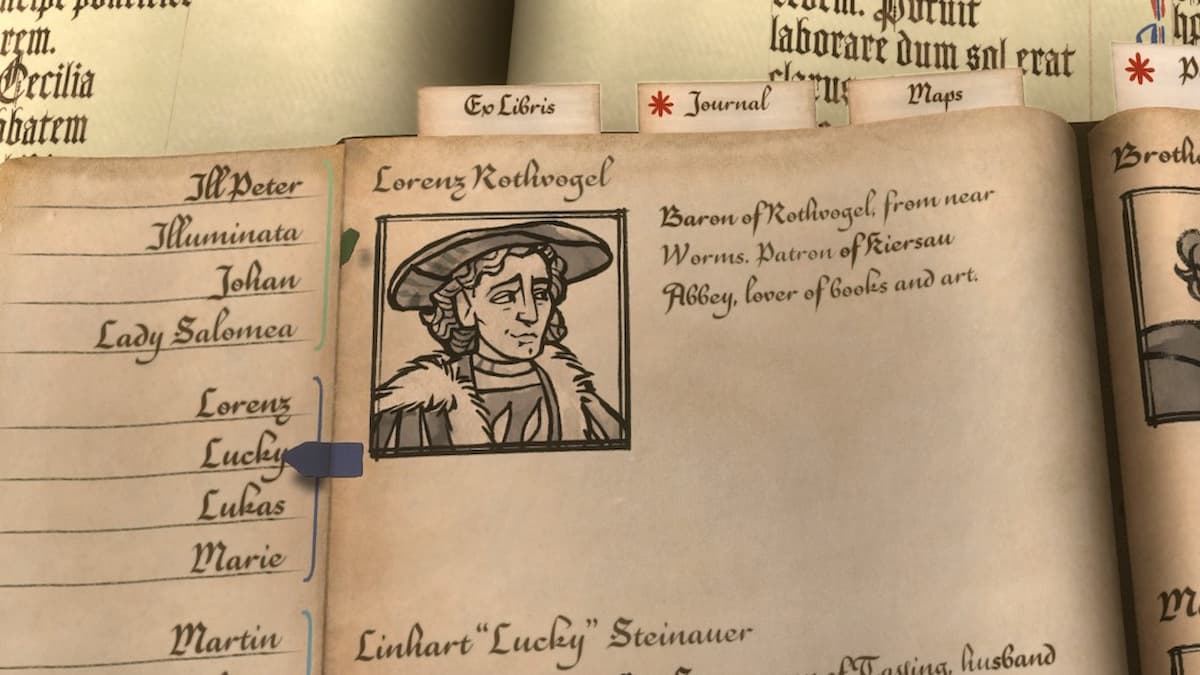 rem.
Cecilia
abatem
laborare dum sol erat
Ex Libris
Journal
Maps
Ill Peter
Illuminata
Johan
Lady Salomea
Lorenz
Lucky
Lukas
Marie
Martin
Lorenz Rothvogel
Baron of Rothvogel, from near
Worms. Patron of Kiersau
Abbey, lover of books and art.
Linhart "Lucky" Steinauer
of Tassing, husband